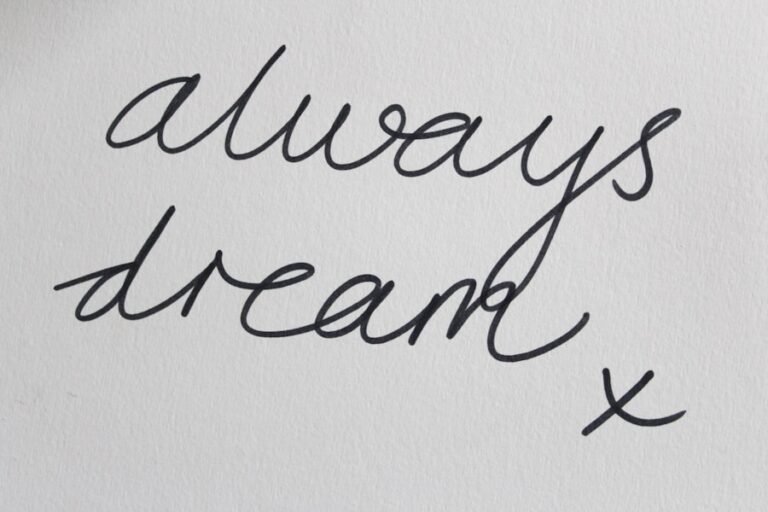 always
dream
x